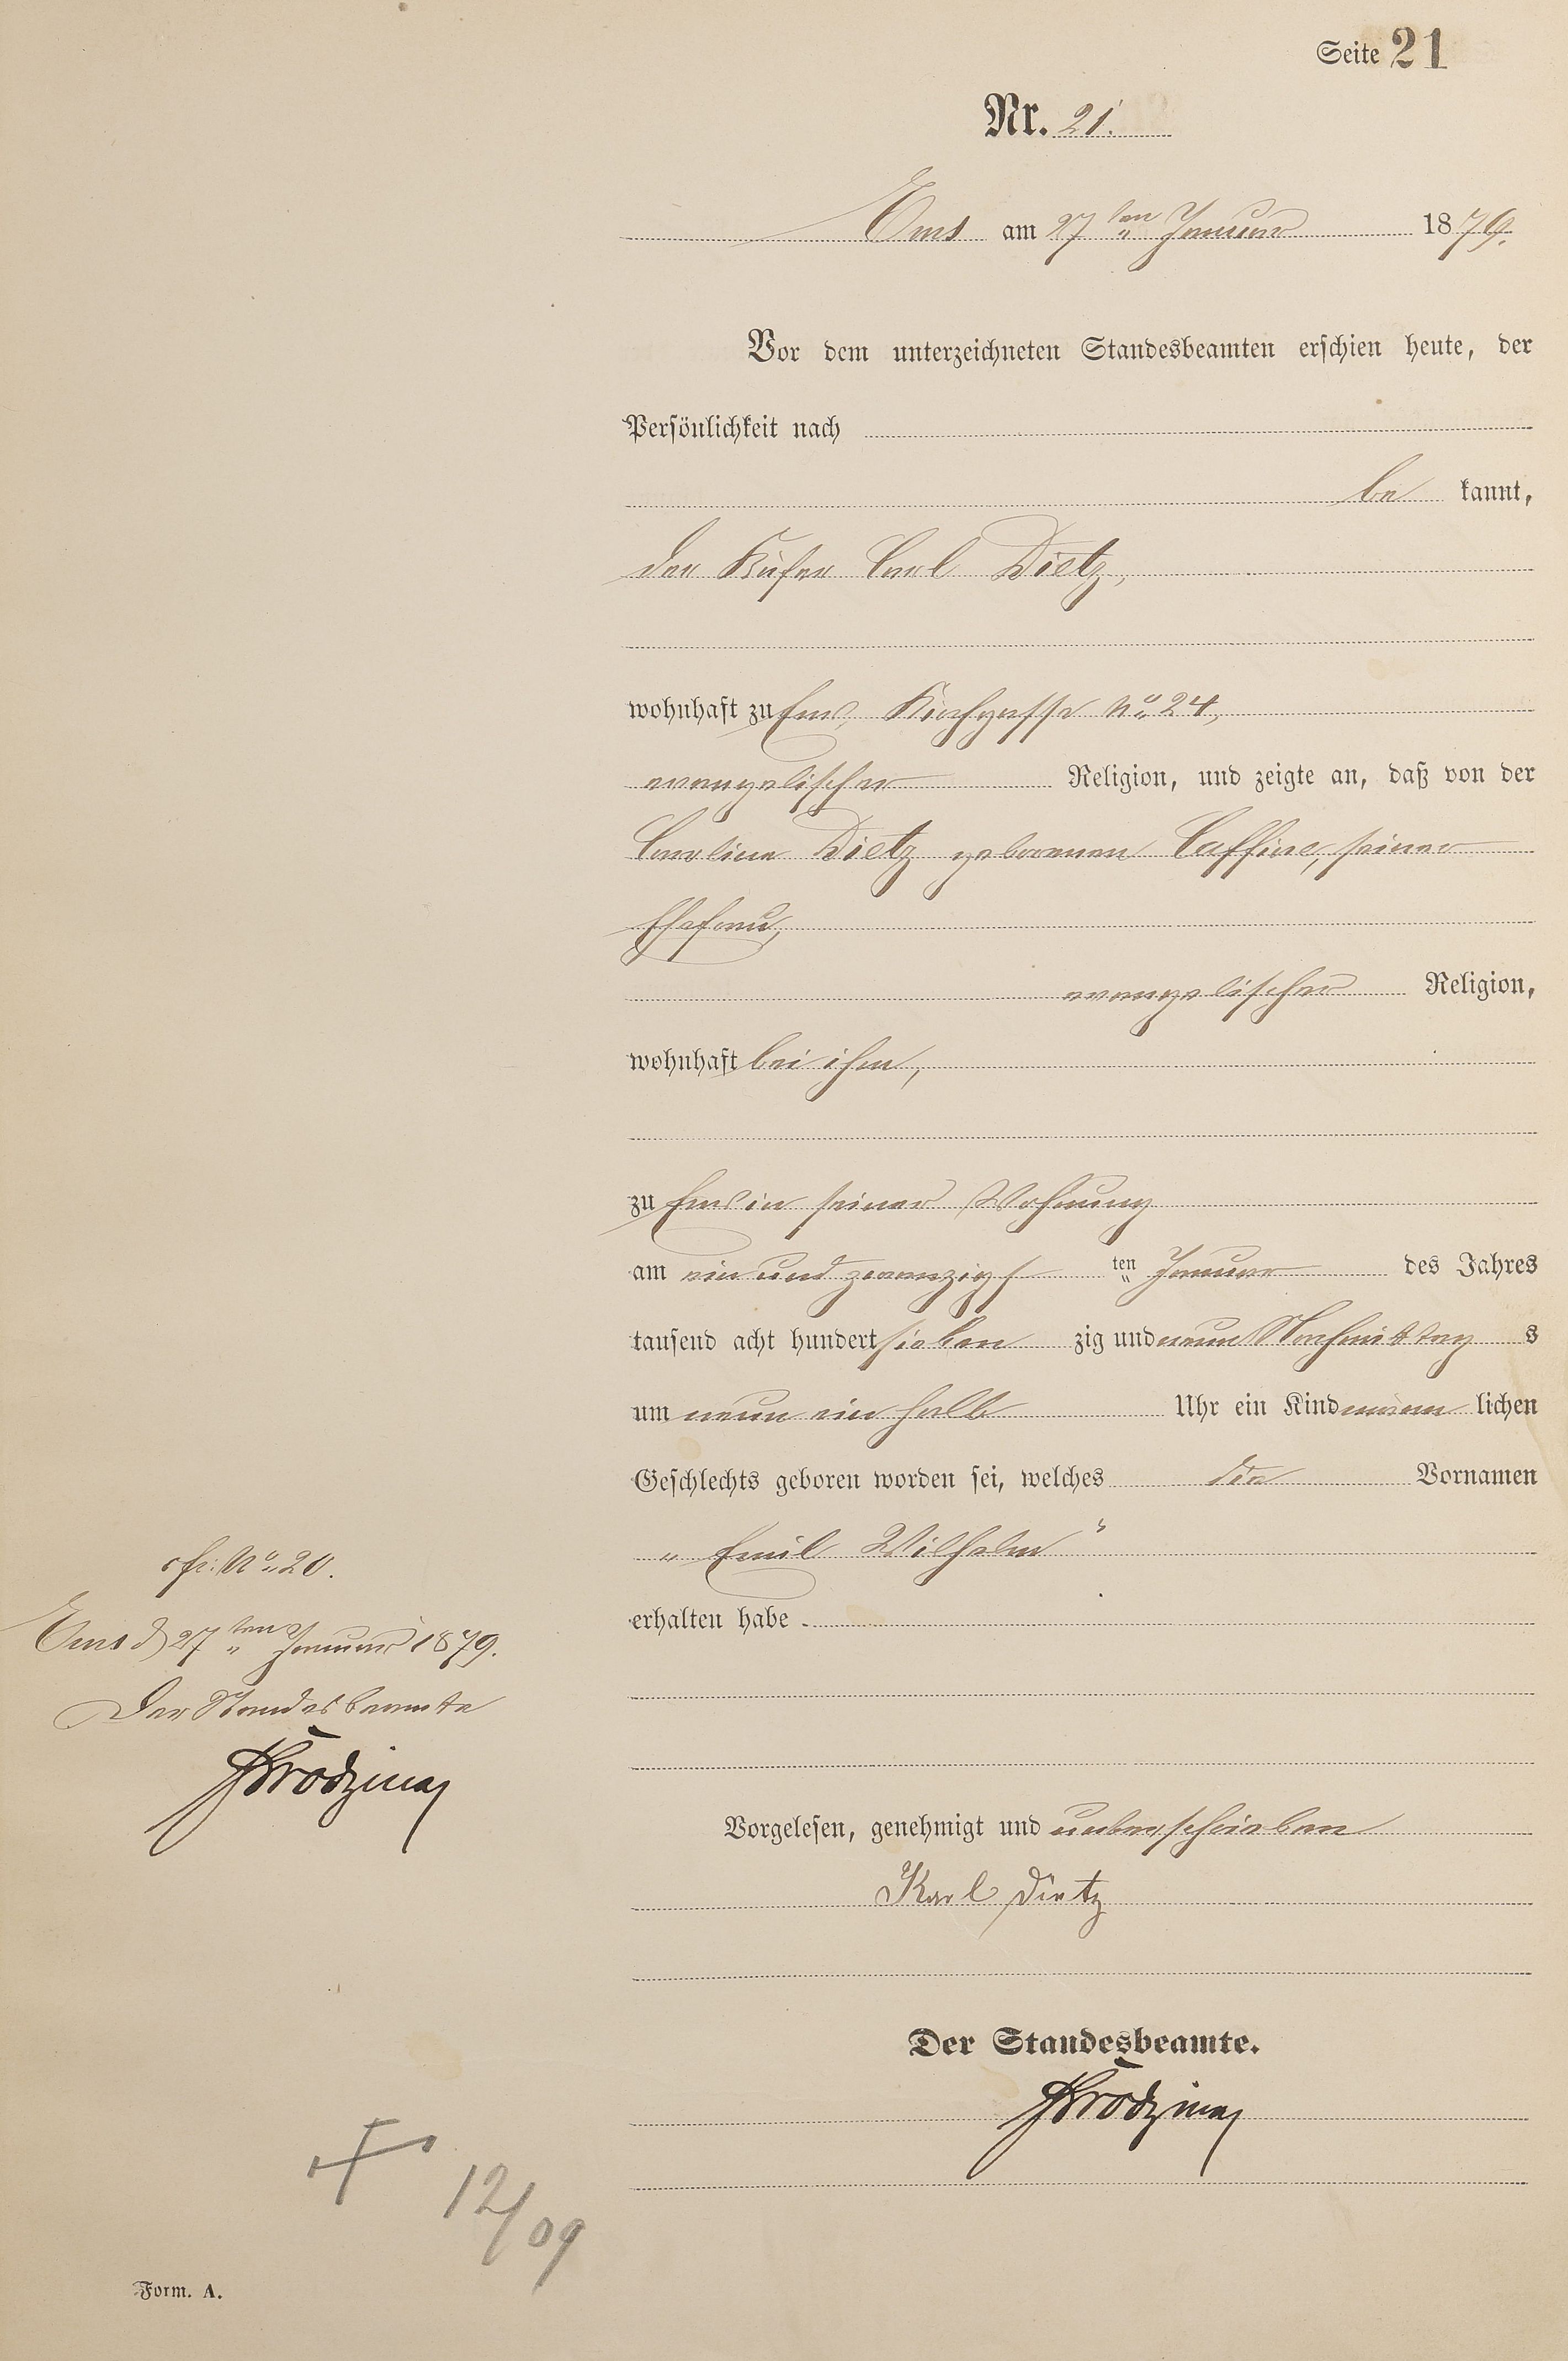 Seite 21
Nr. 21.
Ems am 27ten Januar 1879.
Vor dem unterzeichneten Standesbeamten erschien heute, der
Persönlichkeit nach
be kannt,
der Küfer Carl Dietz,
wohnhaft zu Ems, Kirchgasse No 24,
evangelischer Religion, und zeigte an, daß von der
Caroline Dietz geborenen Caffine, seiner
Ehefrau,
evangelischer Religion,
wohnhaft bei ihm,
zu Ems in seiner Wohnung
am ein und zwanzigs ten Januar des Jahres
tausend acht hundert sieben zig und neun Nachmittag s
um neun ein halb Uhr ein Kind männ lichen
Geschlechts geboren worden sei, welches die Vornamen
„Emil Wilhelm“
erhalten habe.
cfr: No 20.
Ems d 27ten Januar 1879.
Der Standesbeamte
Vorgelesen, genehmigt und unterschrieben
Karl Dietz
Der Standesbeamte.
12/09
Form. A.